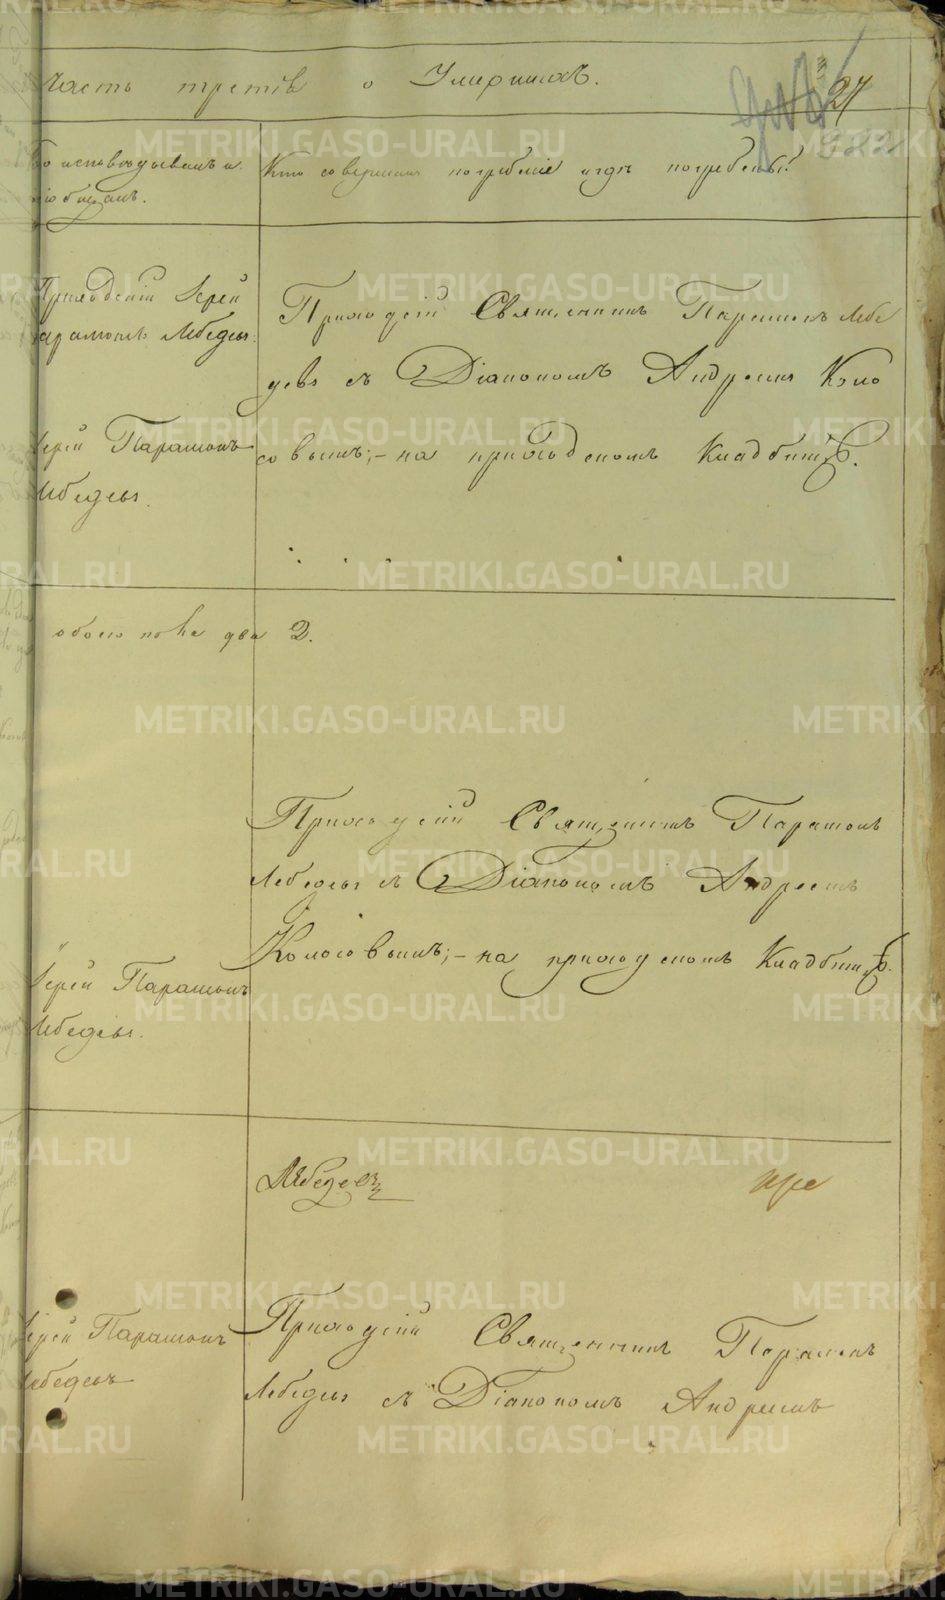 Часть третія о Умершихъ.
27
исповѣдывалъ и
пріобщалъ.
Кто совершалъ погребеніе и гдѣ погребены?
Приходскій Іерей
Парамонъ Лебедевъ.
Приходскій Священникъ Парамонъ Лебе
девъ съ Діакономъ Андреемъ Коло
совымъ;- на приходскомъ Кладбищѣ.
Іерей Парамонъ
Лебедевъ.
обоего пола два 2.
Приходскій Священникъ Парамонъ
Лебедевъ съ Діакономъ Андреемъ
Колосовымъ;- на приходскомъ Кладбищѣ.
Іерей Парамонъ
Лебедевъ.
Лебедевъ
Іерей Парамонъ
Лебедевъ
Приходскій Священникъ Парамонъ
Лебедевъ съ Діакономъ Андреемъ
METRIKI.GASO-URAL.RU